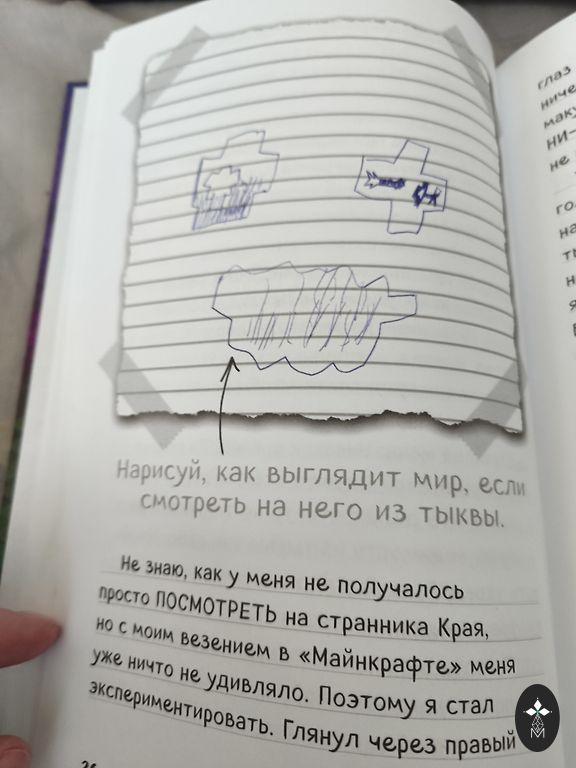 Нарисуй, как выглядит мир, если
смотреть на него из тыквы.
Не знаю, как у меня не получалось
просто ПОСМОТРЕТЬ на странника Края,
но с моим везением в «Майнкрафте» меня
уже ничто не удивляло. Поэтому я стал
экспериментировать. Глянул через правый
глаз
ниче
маку
НИ-
не
го
на
M